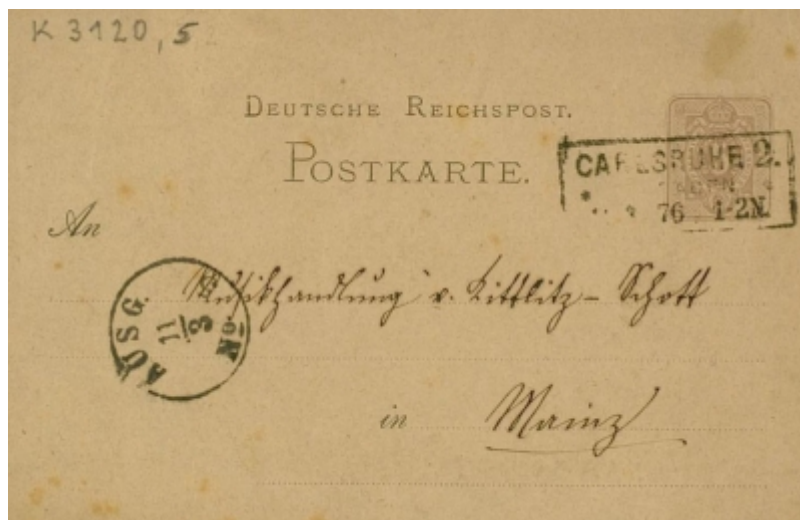 K 3120, 5
DEUTSCHE REICHSPOST.
POSTKARTE.
CARLSRUHE 2.
76 1-2N.
An
Musikhandlung v. Kittlitz-Schott
AUSG.
11
3
in Mainz